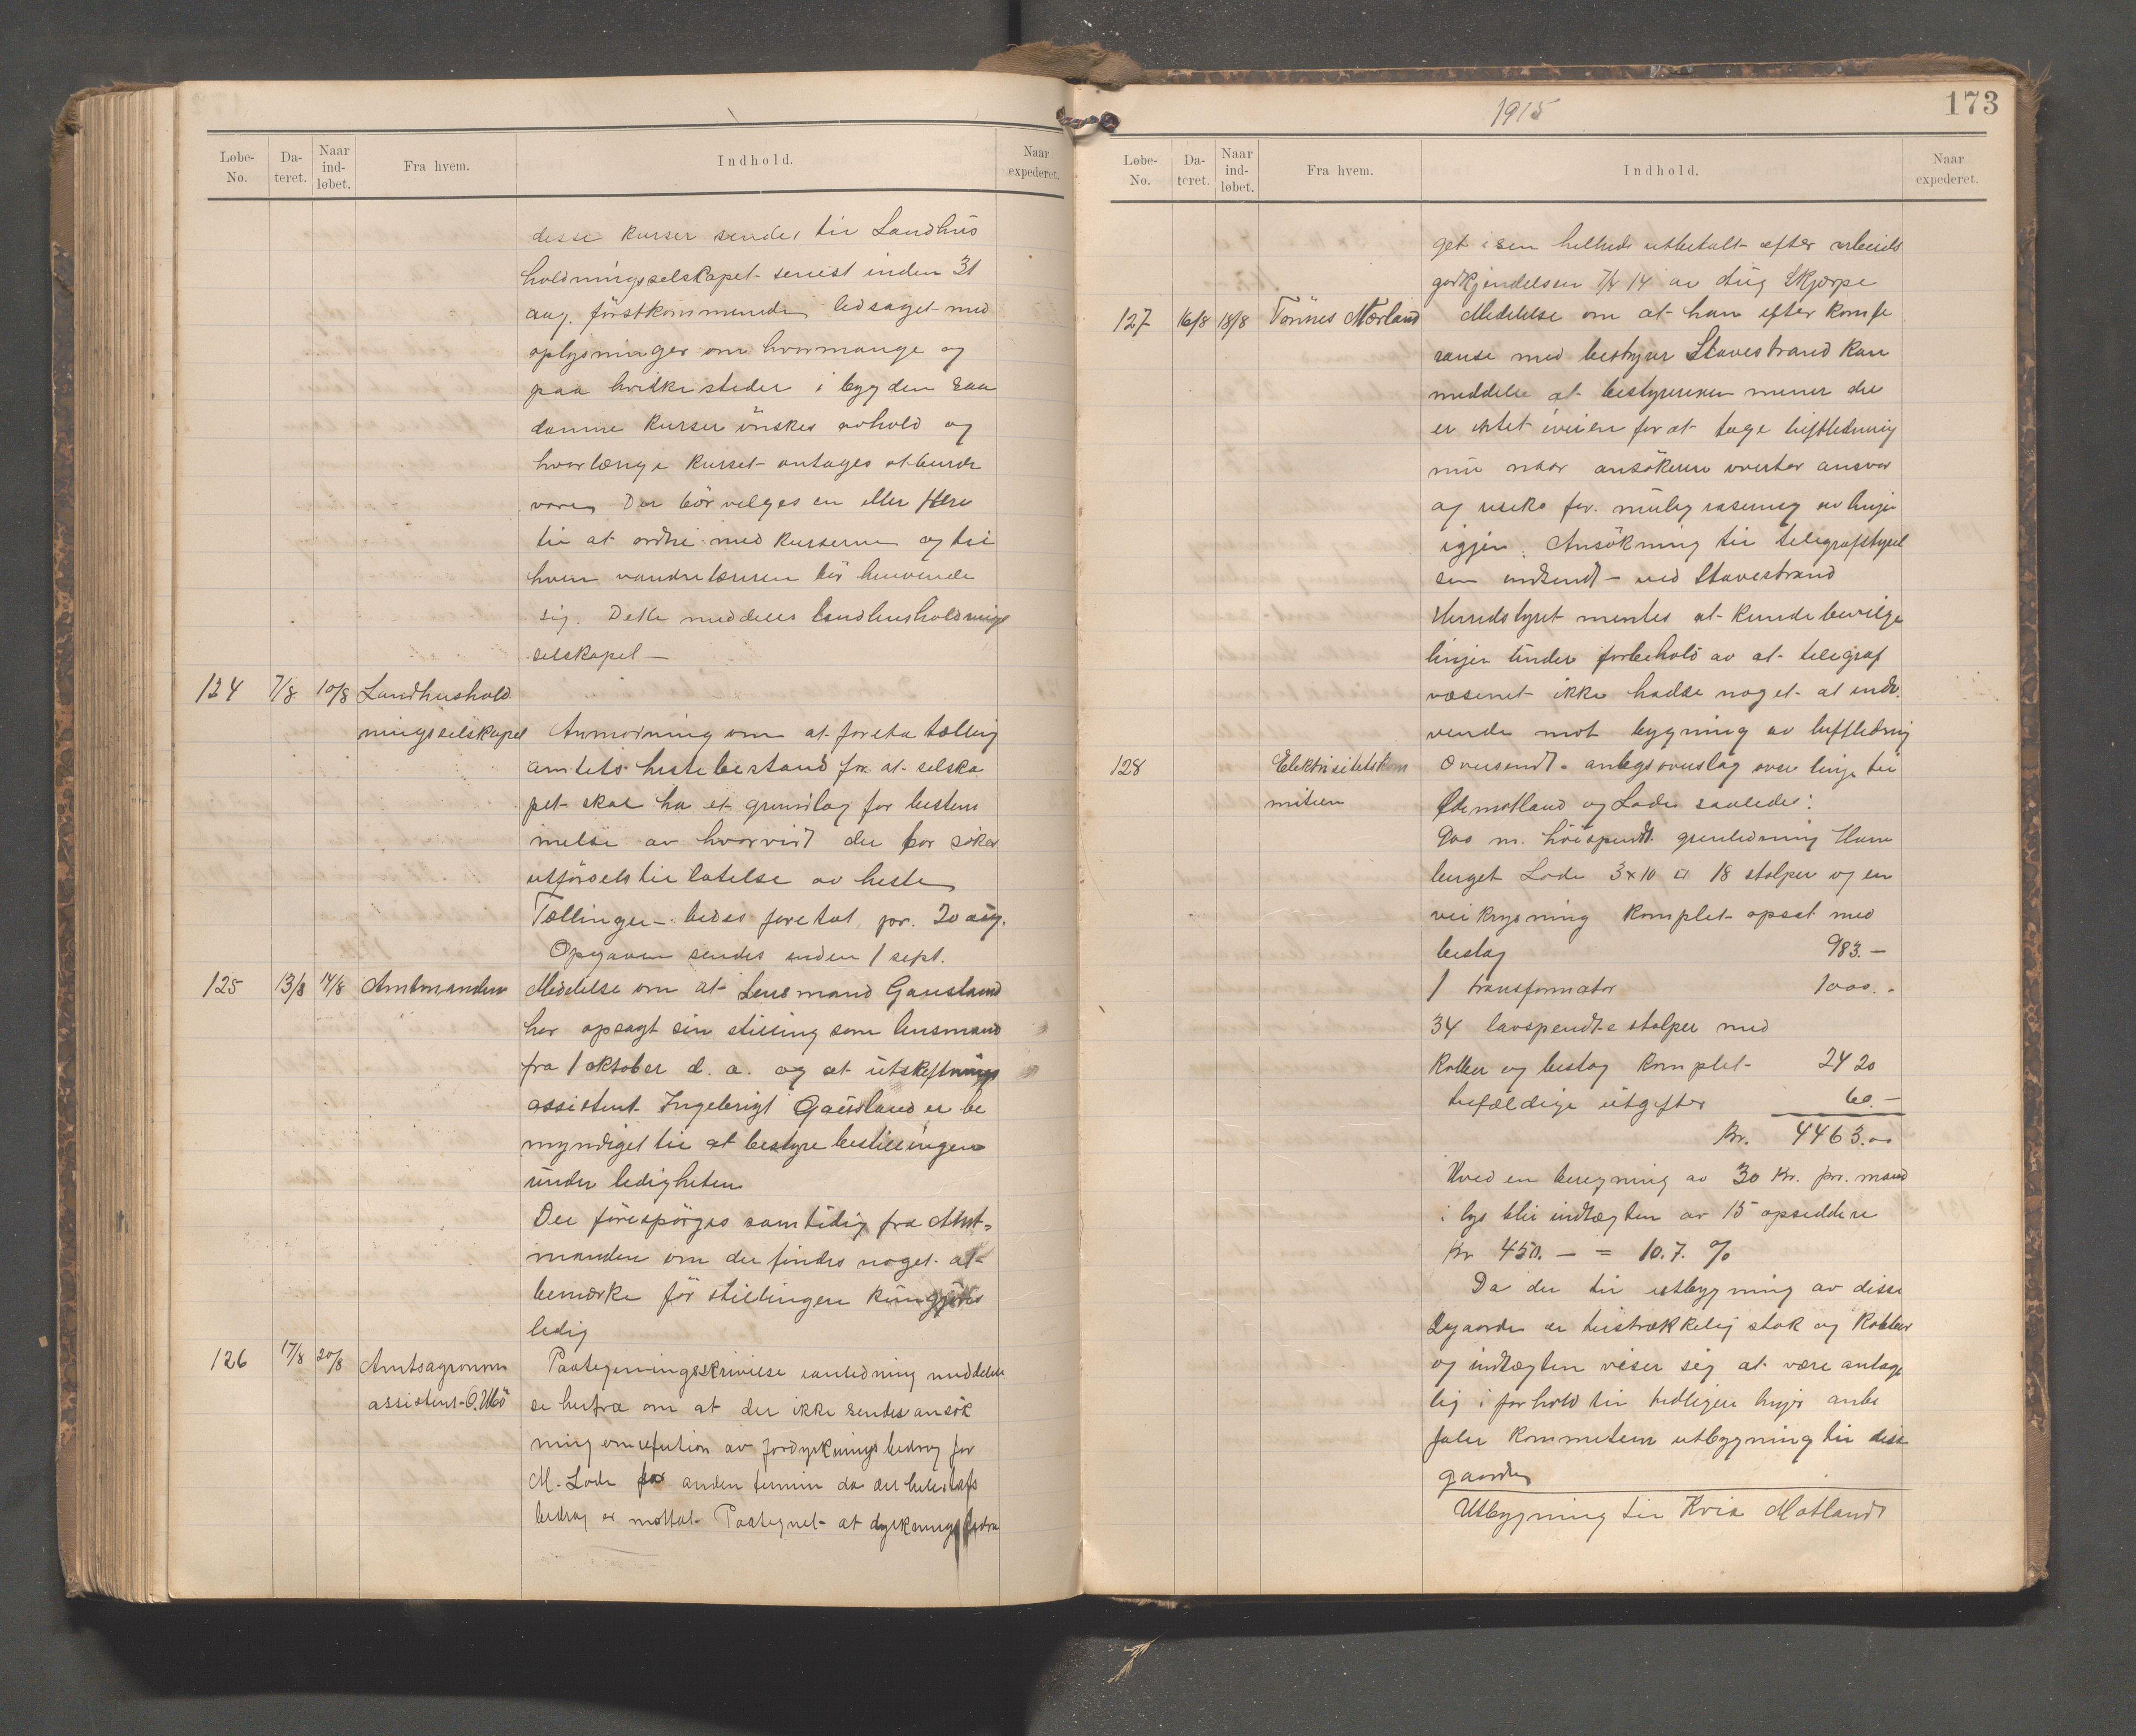 Løbe-No. Da-teret. Naar ind-løbet. Fra hvem. Indhold. Naar expederet.
desse kurser sendes til Landhus
holdningsselskapet senest inden 31
aug. förstkommende ledsaget med
oplysninger om hvormange og
paa hvilke steder i bygden saa
danne kurser önskes avhold og
hvorlænge kurset antages at burde
vare. Der bör velges en eller flere
til at ordne med kurserne og til
hvem vandrelæreren bör henvende
sig. Dette meddeles landhusholdnings
selskapet
124 7/8 10/8 Landhushold
ningsselskapet Anmodning om at foreta tælling
amtets hestebestand for at selska
pet skal ha et grundlag for bestem
melse av hvorvidt der bör söker
utförselstillatelse av heste
Tællingen bedes foretat pr. 20 aug.
Opgaven sendes inden 1 sept.
125 13/8 14/8 Amtmanden Meddelse om at Lensmand Gausland
har opsagt sin stilling som lensmand
fra 1 oktober d. a. og at utskiftnings
assistent Ingebrigt Gausland er be
myndiget til at bestyre bestillingen
under ledigheten
Der forespörges samtidig fra Amt-
manden om der findes noget at
bemærke för stillingen kungjöres
ledig
126 17/8 20/8 Amtsagronom Paategningsskrivelse i anledning meddelel
assistent O. se herfra om at der ikke sendes ansök
ning om refution av fordyrkningsbedrag for
M. Lode for anden termin da der
bedrag er mottat. Paategnet at dyrknings
1915
173
Løbe-No. Da-teret. Naar ind-løbet. Fra hvem. Indhold. Naar expederet.
get i sin helhed utbetalt efter arbeids
godkjendelsen 7/4 14 av Aug Skjærpe
127 16/8 18/8 Tönnes Mærland Medelelse om at han efter konfe
ranse med bestyrer Stavestrand kan
meddele at bestyreren mener der
er intet iveien for at tage luftledning
nu naar ansökeren overtar ansvar
og risiko for mulig rasering av linjen
igjen. Ansökning til telegrafstyrel
sen indsendt ved Stavestrand
Herredstyret mentes at kunde bevilge
linjen under forbehold av at telegraf
væsenet ikke hadde noget at ind
vende mot bygning av luftledning
128 Elektrisitetskom Oversendt anlegsoverslag over linje til
miteen Ødemotland og Lode saaledes:
900 m. höispendt grenledning Hane
berget Lode 3x10 □ 18 stolper og en
veikrysning komplet opsat med
beslag 983.-
1 transformator 1000.-
34 lavspendte stolper med
kobber og beslag komplet 2420
tilfældige utgifter 60.-
Kr. 4463.00
Ved en beregning av 30 kr. pr. mand
i lys blir indtægten av 15 opsiddere
Kr 450.- = 10.7. %
Da der til utbygning av disse
gaarder er tilstrækkelig stok og kobber
og indtægten viser sig at være antage
lig i forhold til tidligere linjer anbe
faler kommiteen utbygning til disse
gaarder
Utbygning til Kvia Motland